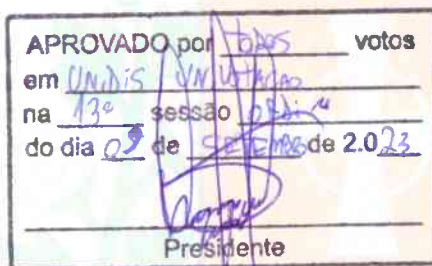 APROVADO por todos votos
em UN.DIS VN VOTAÇÃO
na 13ª sessão ORDIN
do dia 05 de SETEMBRO de 2.023
Presidente